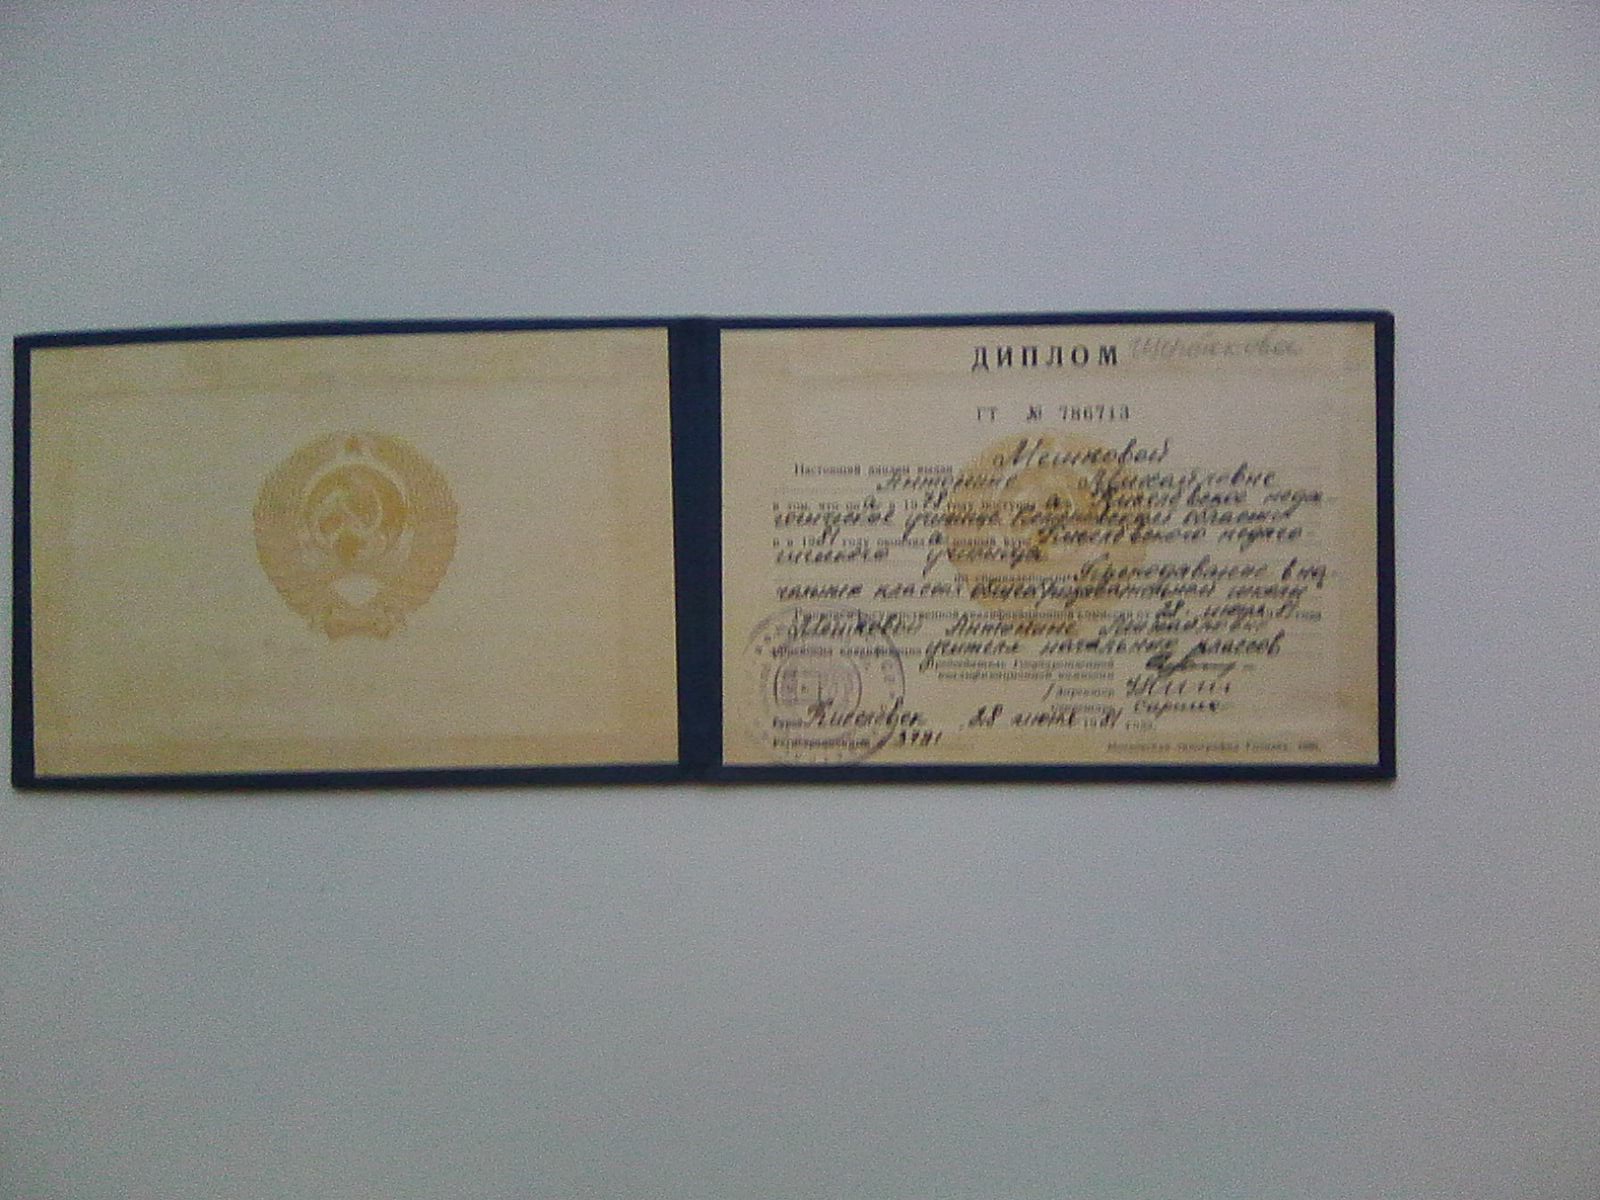 ДИПЛОМ
ГТ № 786713
Настоящий диплом выдан Мешковой
Антонине Михайловне
в том, что он а в 1978 году поступил а в Киселевское педа-
гогическое училище Кемеровской области
и в 1981 году окончил а полный курс Киселевского педаго-
гического училища
по специальности Преподавание в на-
чальных классах общеобразовательной школы
Решением Государственной квалификационной комиссии от 28 июня 1981 года
Мешковой Антонине Михайловне
присвоена квалификация учителя начальных классов
Председатель Государственной
квалификационной комиссии
Директор
Секретарь
Город Киселёвск 28 июня 1981 года
Регистрационный № 3781
Московская типография Гознака. 1980.